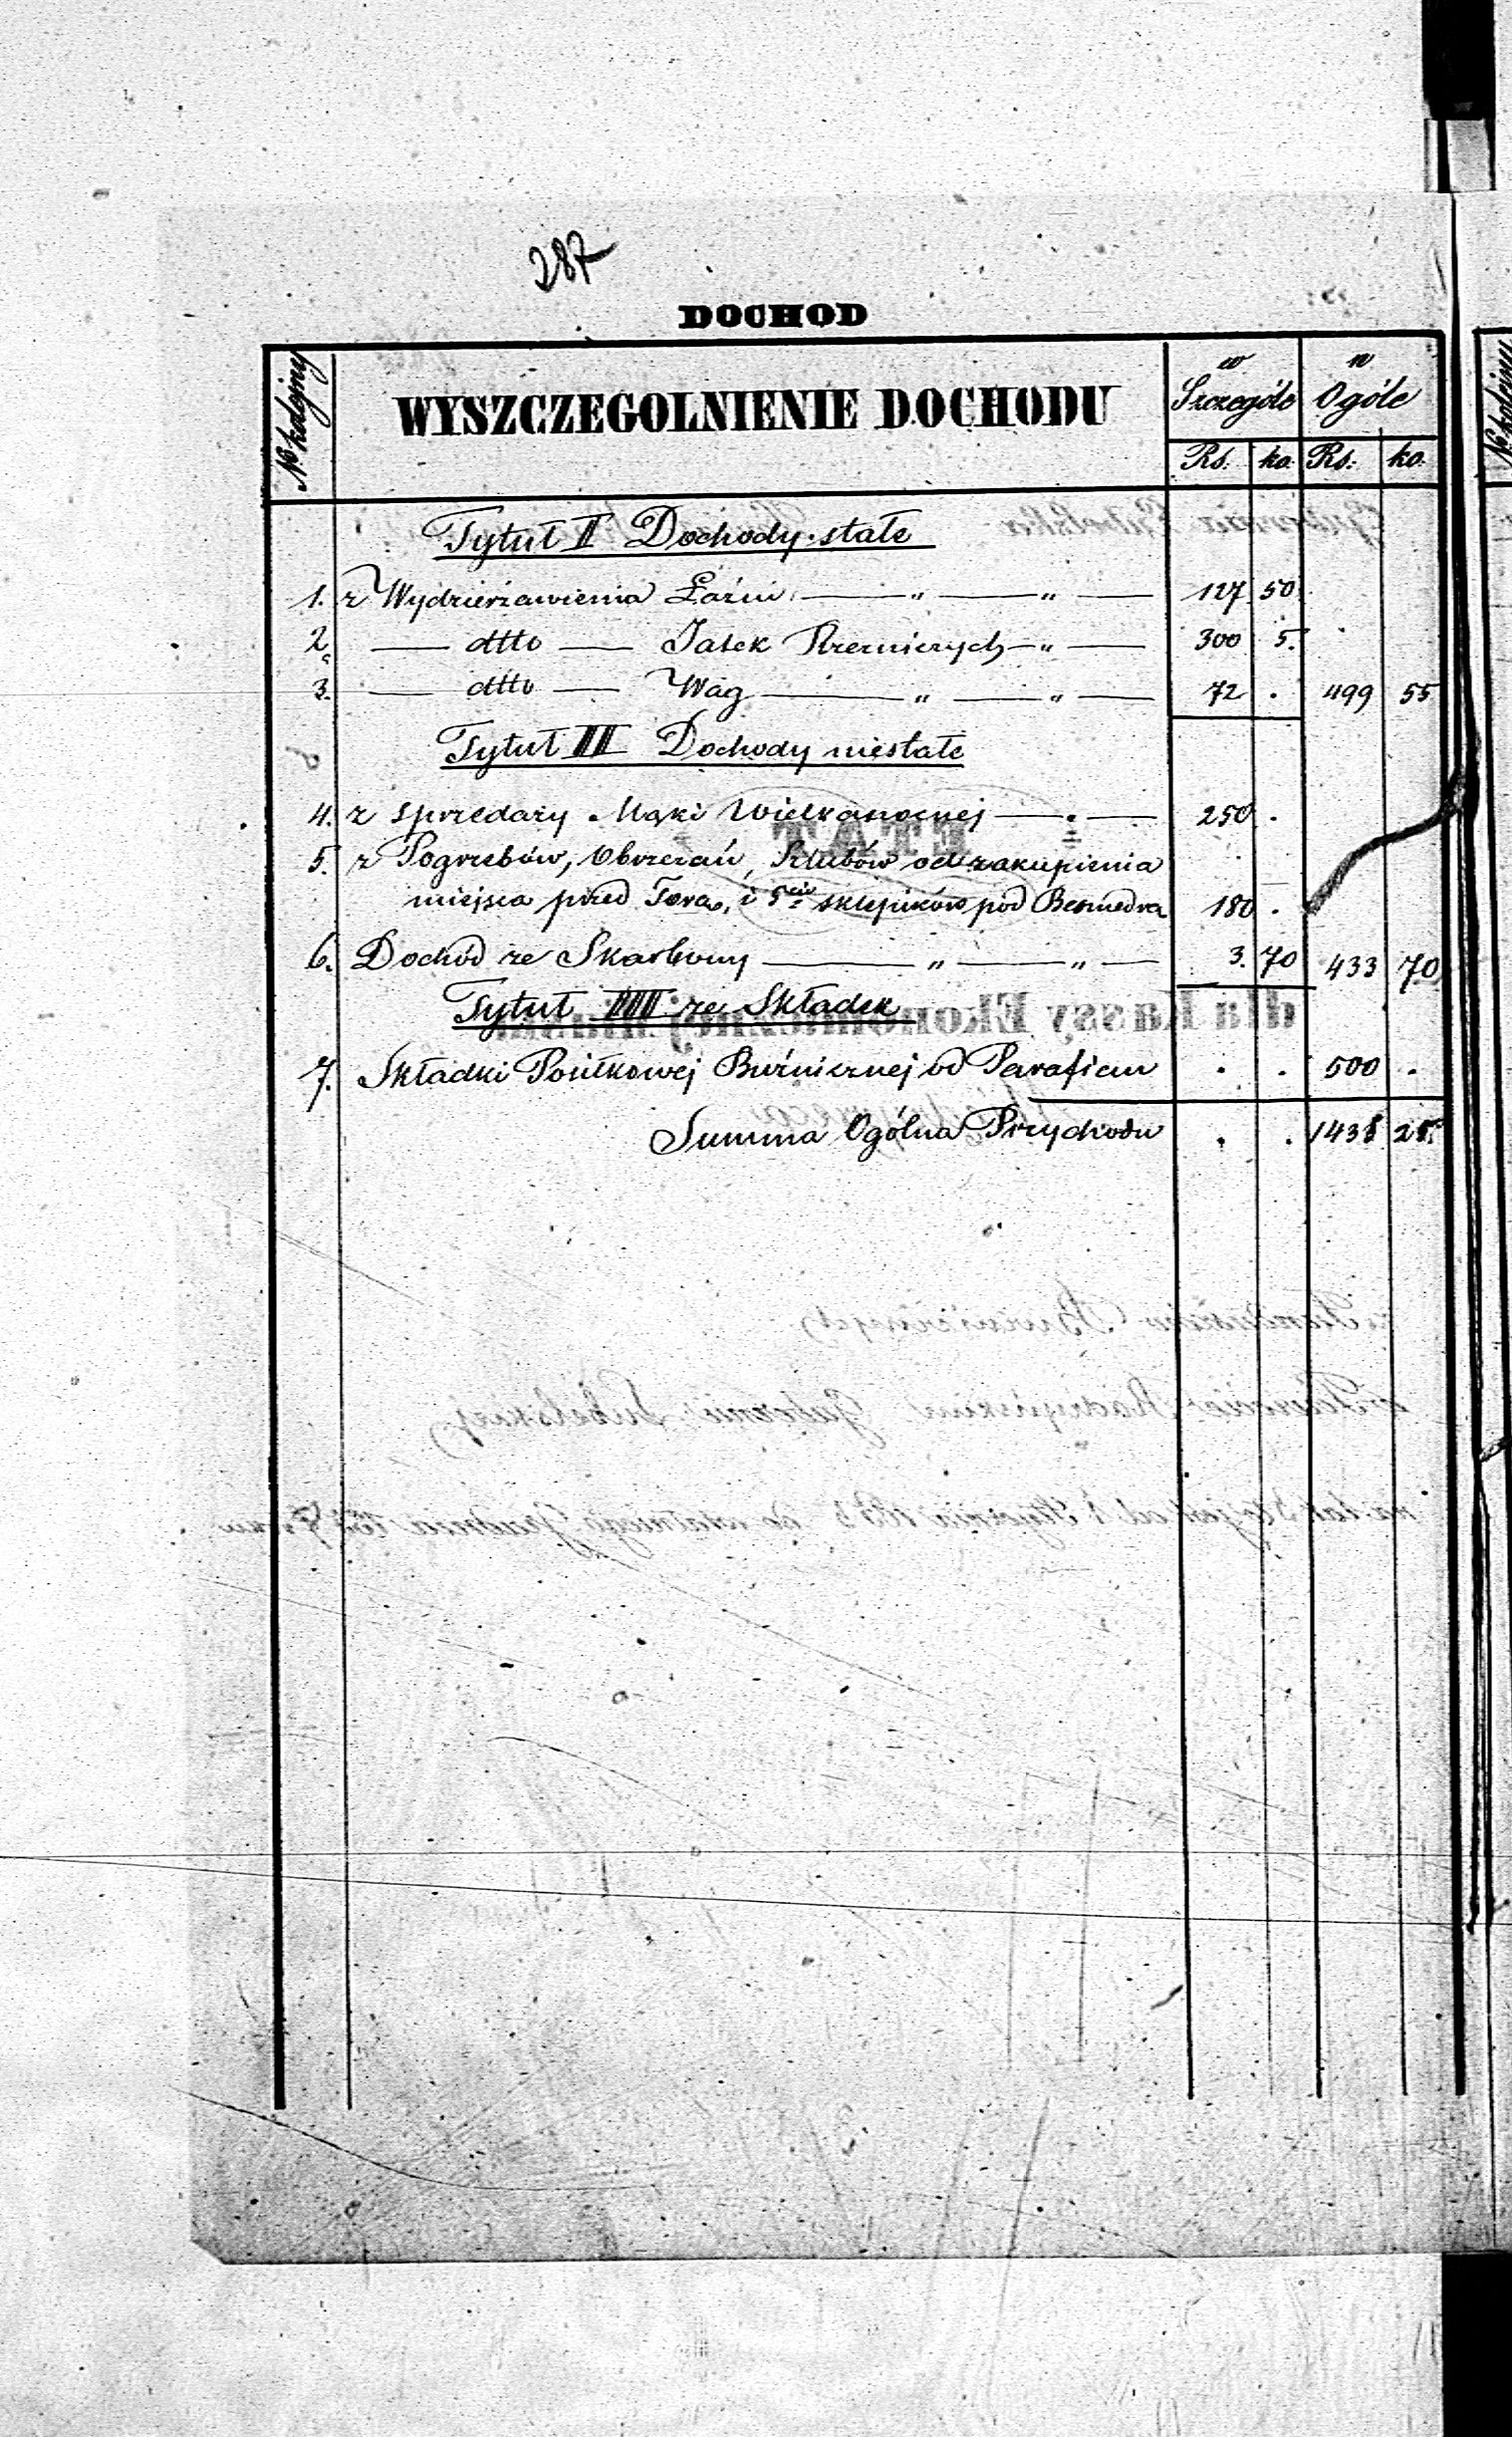 287
DOCHOD
№ kolejny
WYSZCZEGOLNIENIE DOCHODU
w Szczególe
w Ogóle
Rs. ko. Rs: ko.
Tytuł I Dochody stałe
1. z Wydzierżawienia Łaźni — " — " — 127 50
2. — dtto — Jatek Rzezniczych — " — 300 5.
3. — dtto — Wag — " — " — 72 . 499 55
Tytuł II Dochody niestałe
4. z sprzedaży Mąki Wielkanocnej — . — 250 .
5. z Pogrzebów, Obrzezań, Szlubów od zakupienia
miejsca przed Torą, i 5ciu sklepików pod 180 .
6. Dochód ze Skarbony — " — " — 3. 70 433 70
Tytuł III ze Składek
7. Składki Posiłkowej Buźnicznej od Parafian . . 500 .
Summa Ogólna Przychodu . . 1438 25.